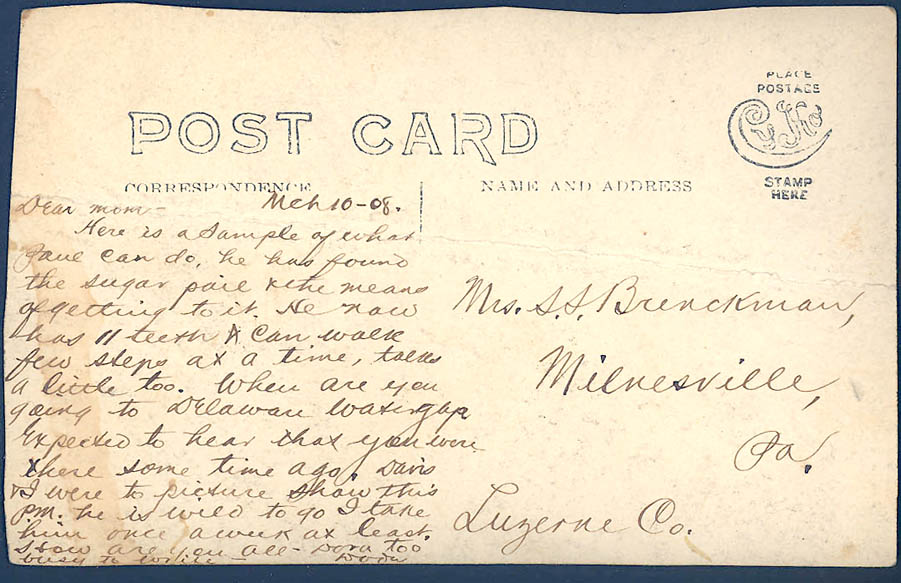 PLACE
POSTAGE
CyKo
STAMP
HERE
POST CARD
CORRESPONDENCE
NAME AND ADDRESS
Mch 10-08.
Dear mom-
Here is a sample of what
Paul can do, he has found
the sugar pail & the means
of getting to it. He now
has 11 teeth & can walk
few steps at a time, talks
a little too. When are you
going to Delaware Watergap
Expected to hear that you were
there some time ago. Davis
& I were to picture show this
P.M. he is wild to go I take
him once a week at least.
How are you all - Dora too
busy to write -
Mrs. S.S. Brenckman,
Milnesville,
Pa.
Luzerne Co.